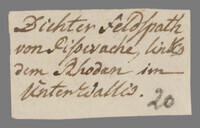 Dichter Feldspath
von Pissevache, links
dem Rhodan im
Unter Wallis.
20